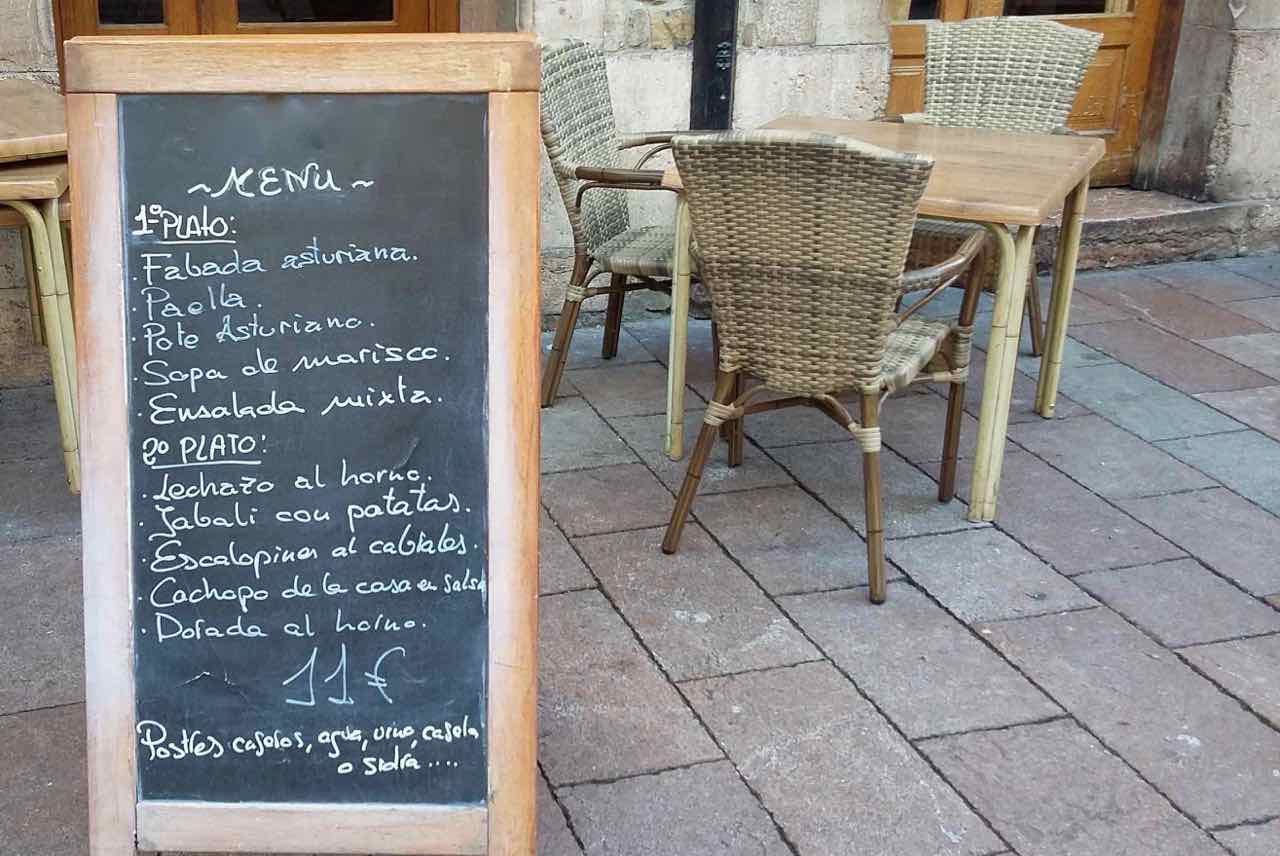 ~ MENU ~
1º PLATO:
· Fabada asturiana.
· Paella.
· Pote Asturiano.
· Sopa de marisco.
· Ensalada mixta.
2º PLATO:
· Lechazo al horno.
· Jabali con patatas.
· Escalopines al cabrales.
· Cachopo de la casa en salsa
· Dorada al horno.
11€
Postres caseros, agua, vino, casera
o sidra ....